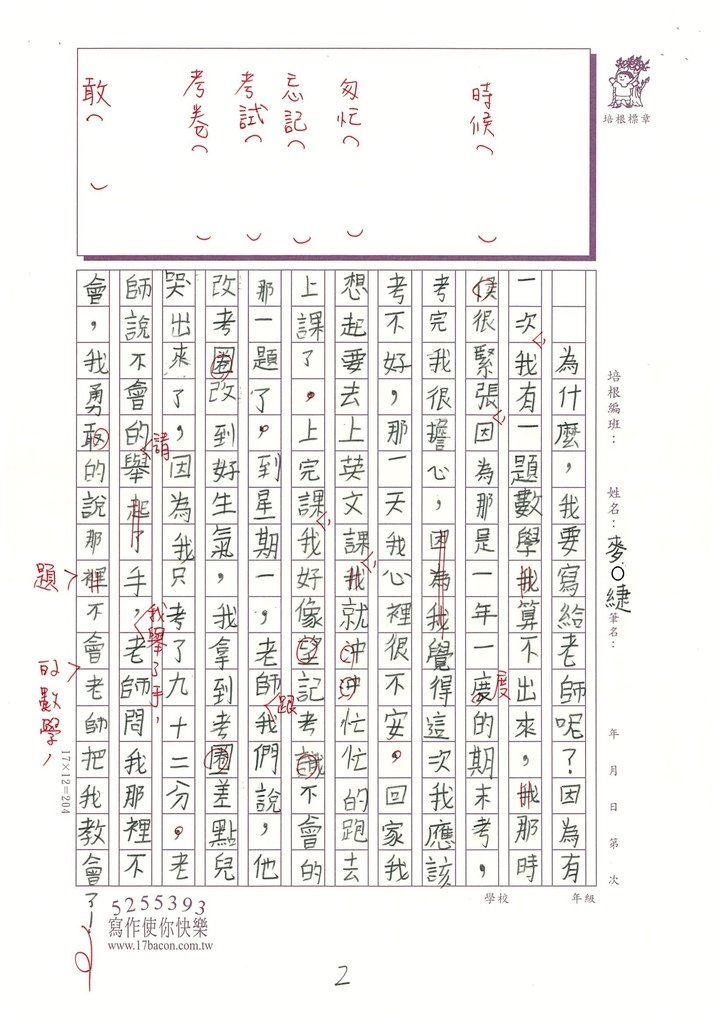 培根標章
時候（ ）
匆忙（ ）
忘記（ ）
考試（ ）
考卷（ ）
敢（ ）
培根編班：
姓名：麥○緁
筆名：
年 月 日 第 次
學校 年級
為什麼，我要寫給老師呢？因為有
一次我有一題數學我算不出來，我那時
候很緊張因為那是一年一度的期末考，
度
考完我很擔心，因為我覺得這次我應該
考不好，那一天我心裡很不安。回家我
想起要去上英文課我就沖沖忙忙的跑去
上課了。上完課我好像望記考試不會的
那一題了。到星期一，老師我們說，他
跟
改考圈改到好生氣，我拿到考圈差點兒
哭出來了，因為我只考了九十二分。老
我舉了手，
師說不會的舉起了手，老師問我那裡不
請
會，我勇敢的說那裡不會老師把我教會
了！
題
的數學，
17×12=204
5255393
寫作使你快樂
www.17bacon.com.tw
2